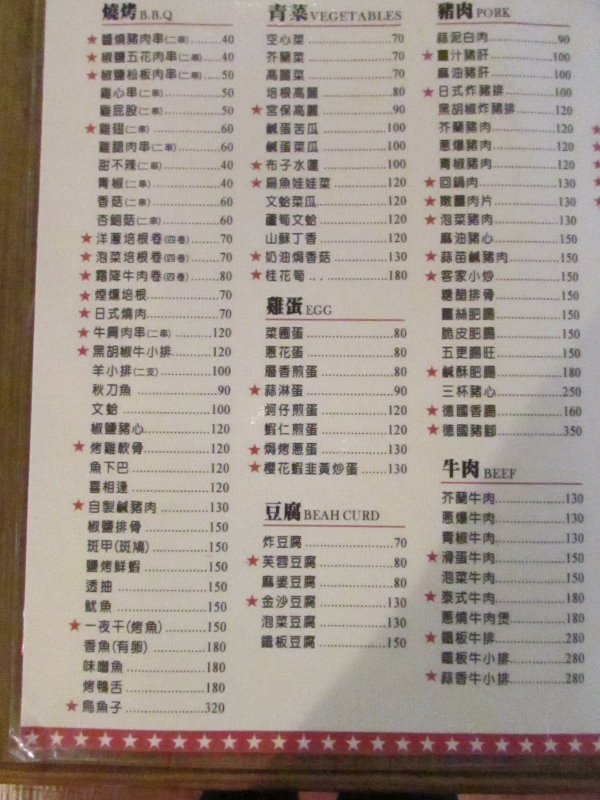 燒烤 B.B.Q
★醬燒豬肉串(二串)......40
★椒鹽五花肉串(二串)......40
★椒鹽松板肉串(二串)......50
雞心串(二串)......50
雞屁股(二串)......50
★雞翅(二串)......60
雞腿肉串(二串)......60
甜不辣(二串)......40
青椒(二串)......40
香菇(二串)......60
杏鮑菇(二串)......60
★洋蔥培根卷(四卷)......70
★泡菜培根卷(四卷)......70
★霜降牛肉卷(四卷)......80
★煙燻培根......70
★日式燒肉......70
★牛肩肉串(二串)......120
★黑胡椒牛小排......120
羊小排(二支)......100
秋刀魚......90
文蛤......100
椒鹽豬心......120
★烤雞軟骨......120
魚下巴......120
喜相逢......120
★自製鹹豬肉......130
椒鹽排骨......150
斑甲(斑鳩)......150
鹽烤鮮蝦......150
透抽......150
魷魚......150
★一夜干(烤魚)......150
香魚(有卵)......180
味噌魚......180
烤鴨舌......180
★烏魚子......320
青菜 VEGETABLES
空心菜......70
芥蘭菜......70
高麗菜......70
培根高麗......80
★宮保高麗......90
鹹蛋苦瓜......100
鹹蛋菜瓜......100
★布子水蓮......100
★扁魚娃娃菜......120
文蛤菜瓜......120
蘆筍文蛤......120
山蘇丁香......120
★奶油焗香菇......130
★桂花筍......180
雞蛋 EGG
菜圃蛋......80
蔥花蛋......80
層香煎蛋......80
★蒜淋蛋......90
蚵仔煎蛋......120
蝦仁煎蛋......120
★焗烤蔥蛋......130
★櫻花蝦韭黃炒蛋......130
豆腐 BEAH CURD
炸豆腐......70
★芙蓉豆腐......80
麻婆豆腐......80
★金沙豆腐......130
泡菜豆腐......130
鐵板豆腐......150
豬肉 PORK
蒜泥白肉......90
★薑汁豬肝......100
麻油豬肝......100
★日式炸豬排......100
黑胡椒炸豬排......120
芥蘭豬肉......120
蔥爆豬肉......120
青椒豬肉......120
★回鍋肉......130
★嫩薑肉片......130
★泡菜豬肉......130
麻油豬心......150
★蒜苗鹹豬肉......150
★客家小炒......150
糖醋排骨......150
薑絲肥腸......150
脆皮肥腸......150
五更腸旺......150
★鹹酥肥腸......180
三杯豬心......250
★德國香腸......160
★德國豬腳......350
牛肉 BEEF
芥蘭牛肉......130
蔥爆牛肉......130
青椒牛肉......130
★滑蛋牛肉......150
泡菜牛肉......150
★泰式牛肉......180
蔥燒牛肉煲......180
★鐵板牛排......280
鐵板牛小排......280
★蒜香牛小排......280